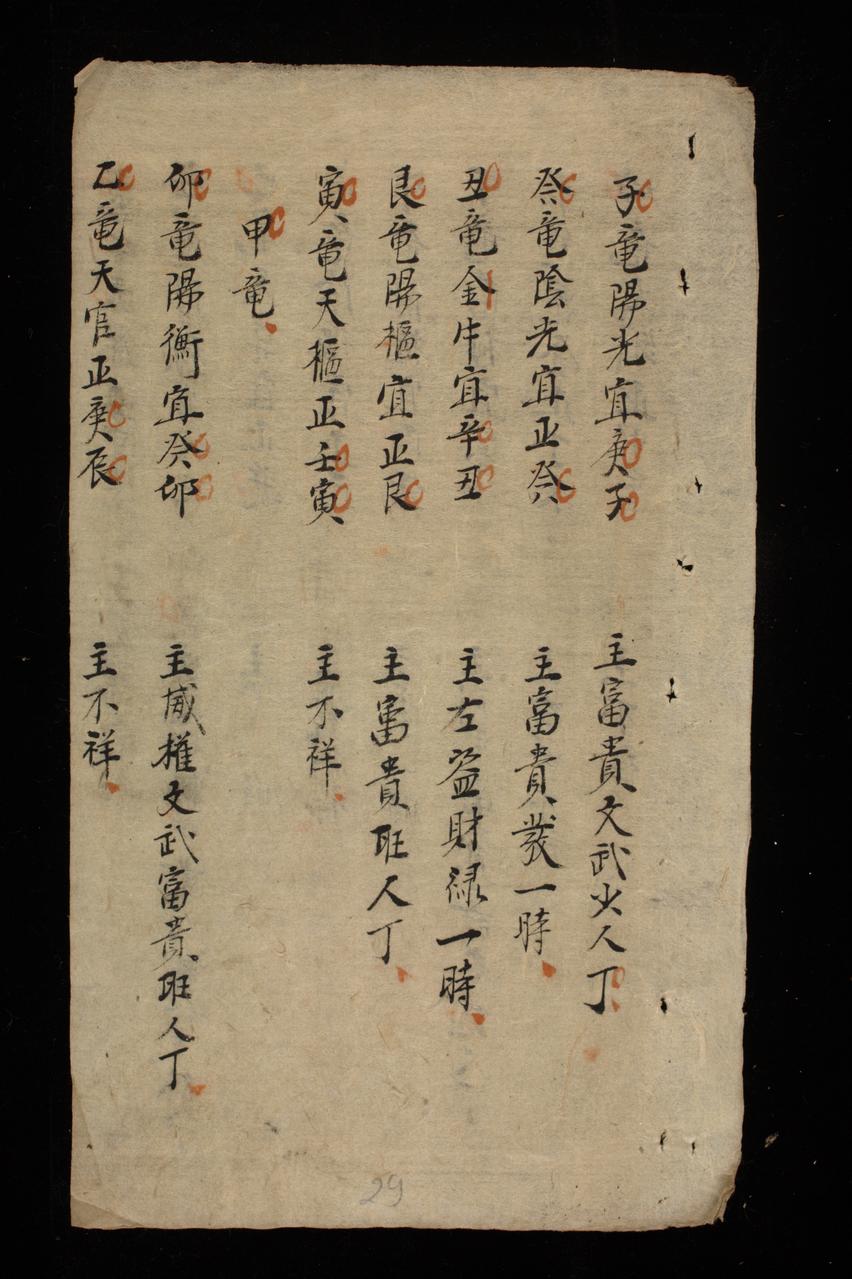 子竜陽光宜庚子 主富貴文武少人丁
癸竜陰光宜正癸 主富貴發一時
丑竜金牛宜辛丑 主左盗財禄一時
艮竜陽樞宜正艮 主富貴旺人丁
寅竜天樞正壬寅 主不祥
甲竜
卯竜陽衡宜癸卯 主威権文武富貴旺人丁
乙竜天官正庚辰 主不祥
29